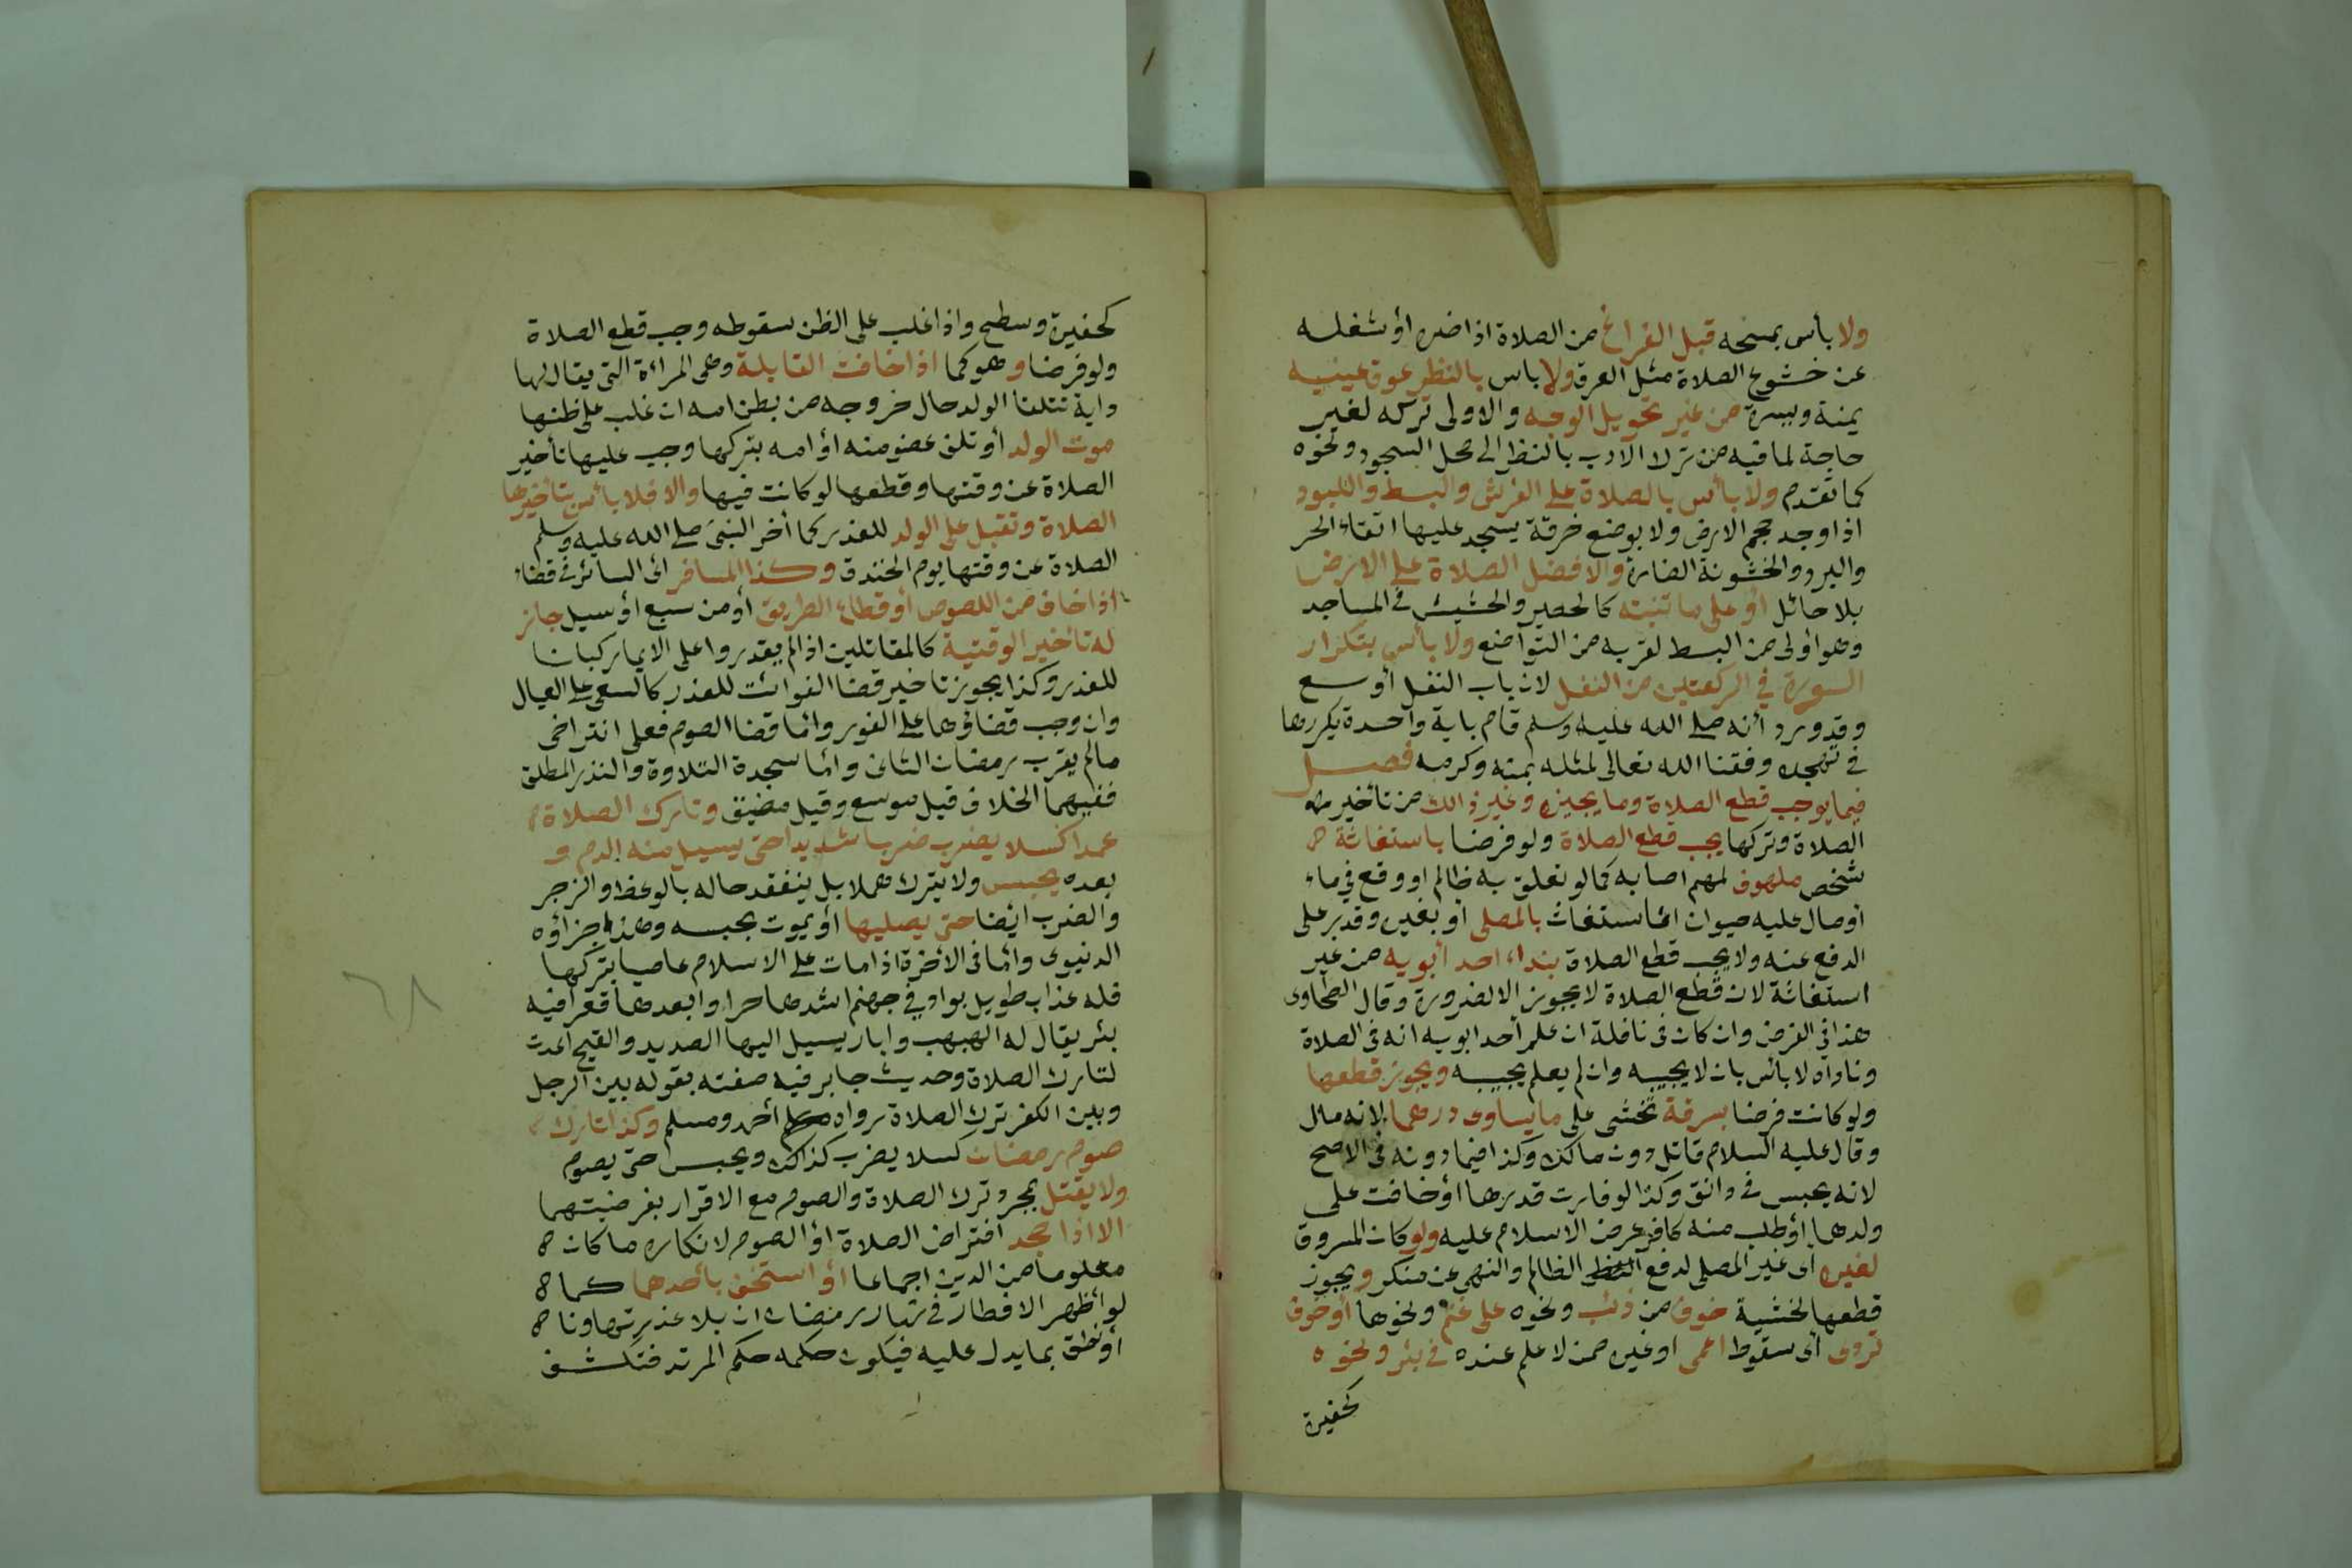 ولا بأس بمسحه قبل الفراغ من الصلاة اذا ضره أو شغله
عن خشوع الصلاة مثل العرق ولا باس بالنظر بموق عينيه
يمنة ويسرة من غير تحويل الوجه والاولى تركه لغير
حاجة لما فيه من ترك الادب بالنظر الى محل السجود ونحوه
كما تقدم ولا بأس بالصلاة على الفرش والبسط واللبود
اذا وجد حجم الارض ولا بوضع خرقة يسجد عليها اتقاء الحر
والبرد والخشونة الضارة والافضل الصلاة على الارض
بلا حائل أو على ما تنبته كالحصير والحشيش في المساجد
وهو أولى من البسط لقربه من التواضع ولا بأس بتكرار
السورة في الركعتين من النفل لان باب النفل أوسع
وقد ورد أنه صلى الله عليه وسلم قام باية واحدة يكررها
في تهجده وفقنا الله تعالى لمثله بمنه وكرمه فصل
فيما يوجب قطع الصلاة وما يجيزه وغير ذالك من تأخير
الصلاة وتركها يجب قطع الصلاة ولو فرضا باستغاثة
شخص ملهوف لمهم اصابه كما لو تعلق به ظالم او وقع في ماء
او صال عليه حيوان فاستغاث بالمصلى أو بغيره وقدر على
الدفع عنه ولا يجب قطع الصلاة بنداء احد أبويه من غير
استغاثة لان قطع الصلاة لا يجوز الا لضرورة وقال الطحاوى
هذا في الفرض وان كان في نافلة ان علم أحد ابويه انه في الصلاة
وناداه لا بأس بان لا يجيبه وان لم يعلم يجيبه ويجوز قطعها
ولو كانت فرضا بسرقة تخشى على ما يساوى درهما لانه مال
وقال عليه السلام قاتل دون مالك وكذا فيما دونه في الاصح
لانه يحبس في دانق وكذا لو فارت قدرها أو خافت على
ولدها أو طلب منه كافر عرض الاسلام عليه ولو كان المسروق
لغيره أى غير المصلى لدفع الظالم والنهى عن منكر ويجوز
قطعها لخشية خوف من ذئب ونحوه على غنم ونحوها أو خوف
تردى أى سقوط اعمى او غيره ممن لا علم عنده في بئر ونحوه
كحفيرة
كحفيرة وسطح واذا غلب على الظن سقوطه وجب قطع الصلاة
ولو فرضا وهو كما اذا خافت القابلة وهى المراءة التى يقال لها
داية تتلقا الولد حال خروجه من بطن امه ان غلب على ظنها
موت الولد أو تلف عضو منه أو امه بتركها وجب عليها تأخير
الصلاة عن وقتها وقطعها لو كانت فيها والا فلا بأس بتأخيرها
الصلاة وتقبل على الولد للعذر كما أخر النبى صلى الله عليه وسلم
الصلاة عن وقتها يوم الخندق وكذا المسافر أى السائر في فضاء
اذا خاف من اللصوص أو قطاع الطريق أو من سبع أو سيل جاز
له تأخير الوقتية كالمقاتلين اذا لم يقدروا على الايما ركبانا
للعذر وكذا يجوز تاخير قضا الفوائت للعذر كالسعى على العيال
وان وجب قضاؤها على الفور وائما قضا الصوم فعلى التراخى
مالم يقرب رمضان الثانى وائما سجدة التلاوة والنذر المطلق
ففيهما الخلاف قيل موسع وقيل مضيق وتارك الصلاة
عمدا كسلا يضرب ضربا شديدا حتى يسيل منه الدم و
بعده يحبس ولا يترك هملا بل يتفقد حاله بالوعظ والزجر
والضرب ايضا حتى يصليها أو يموت بحبسه وهذا جزاؤه
الدنيوى وائما في الاخرة اذا مات على الاسلام عاصيا بتركها
فله عذاب طويل بواد في جهنم اشدها حرا وابعدها قعرا فيه
بئر يقال له الهبهب وابار يسيل اليها الصديد والقيح اعدت
لتارك الصلاة وحديث جابر فيه صفته بقوله بين الرجل
وبين الكفر ترك الصلاة رواه أحمد ومسلم وكذا تارك
صوم رمضان كسلا يضرب كذالك ويحبس حتى يصوم
ولا يقتل بمجرد ترك الصلاة والصوم مع الاقرار بفرضيتهما
الا اذا جحد افتراض الصلاة أو الصوم لانكاره ما كان
معلوما من الدين اجماعا أو استخف بأحدها كما
لو أظهر الافطار في نهار رمضان بلا عذر تهاونا
أو نطق بما يدل عليه فيكون حكمه حكم المرتد فتكشف
٦٨